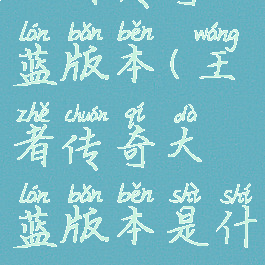 lán bǎn běn wáng
蓝版本(王
zhě chuán qí dà
者传奇大
lán bǎn běn shì shí
蓝版本是什